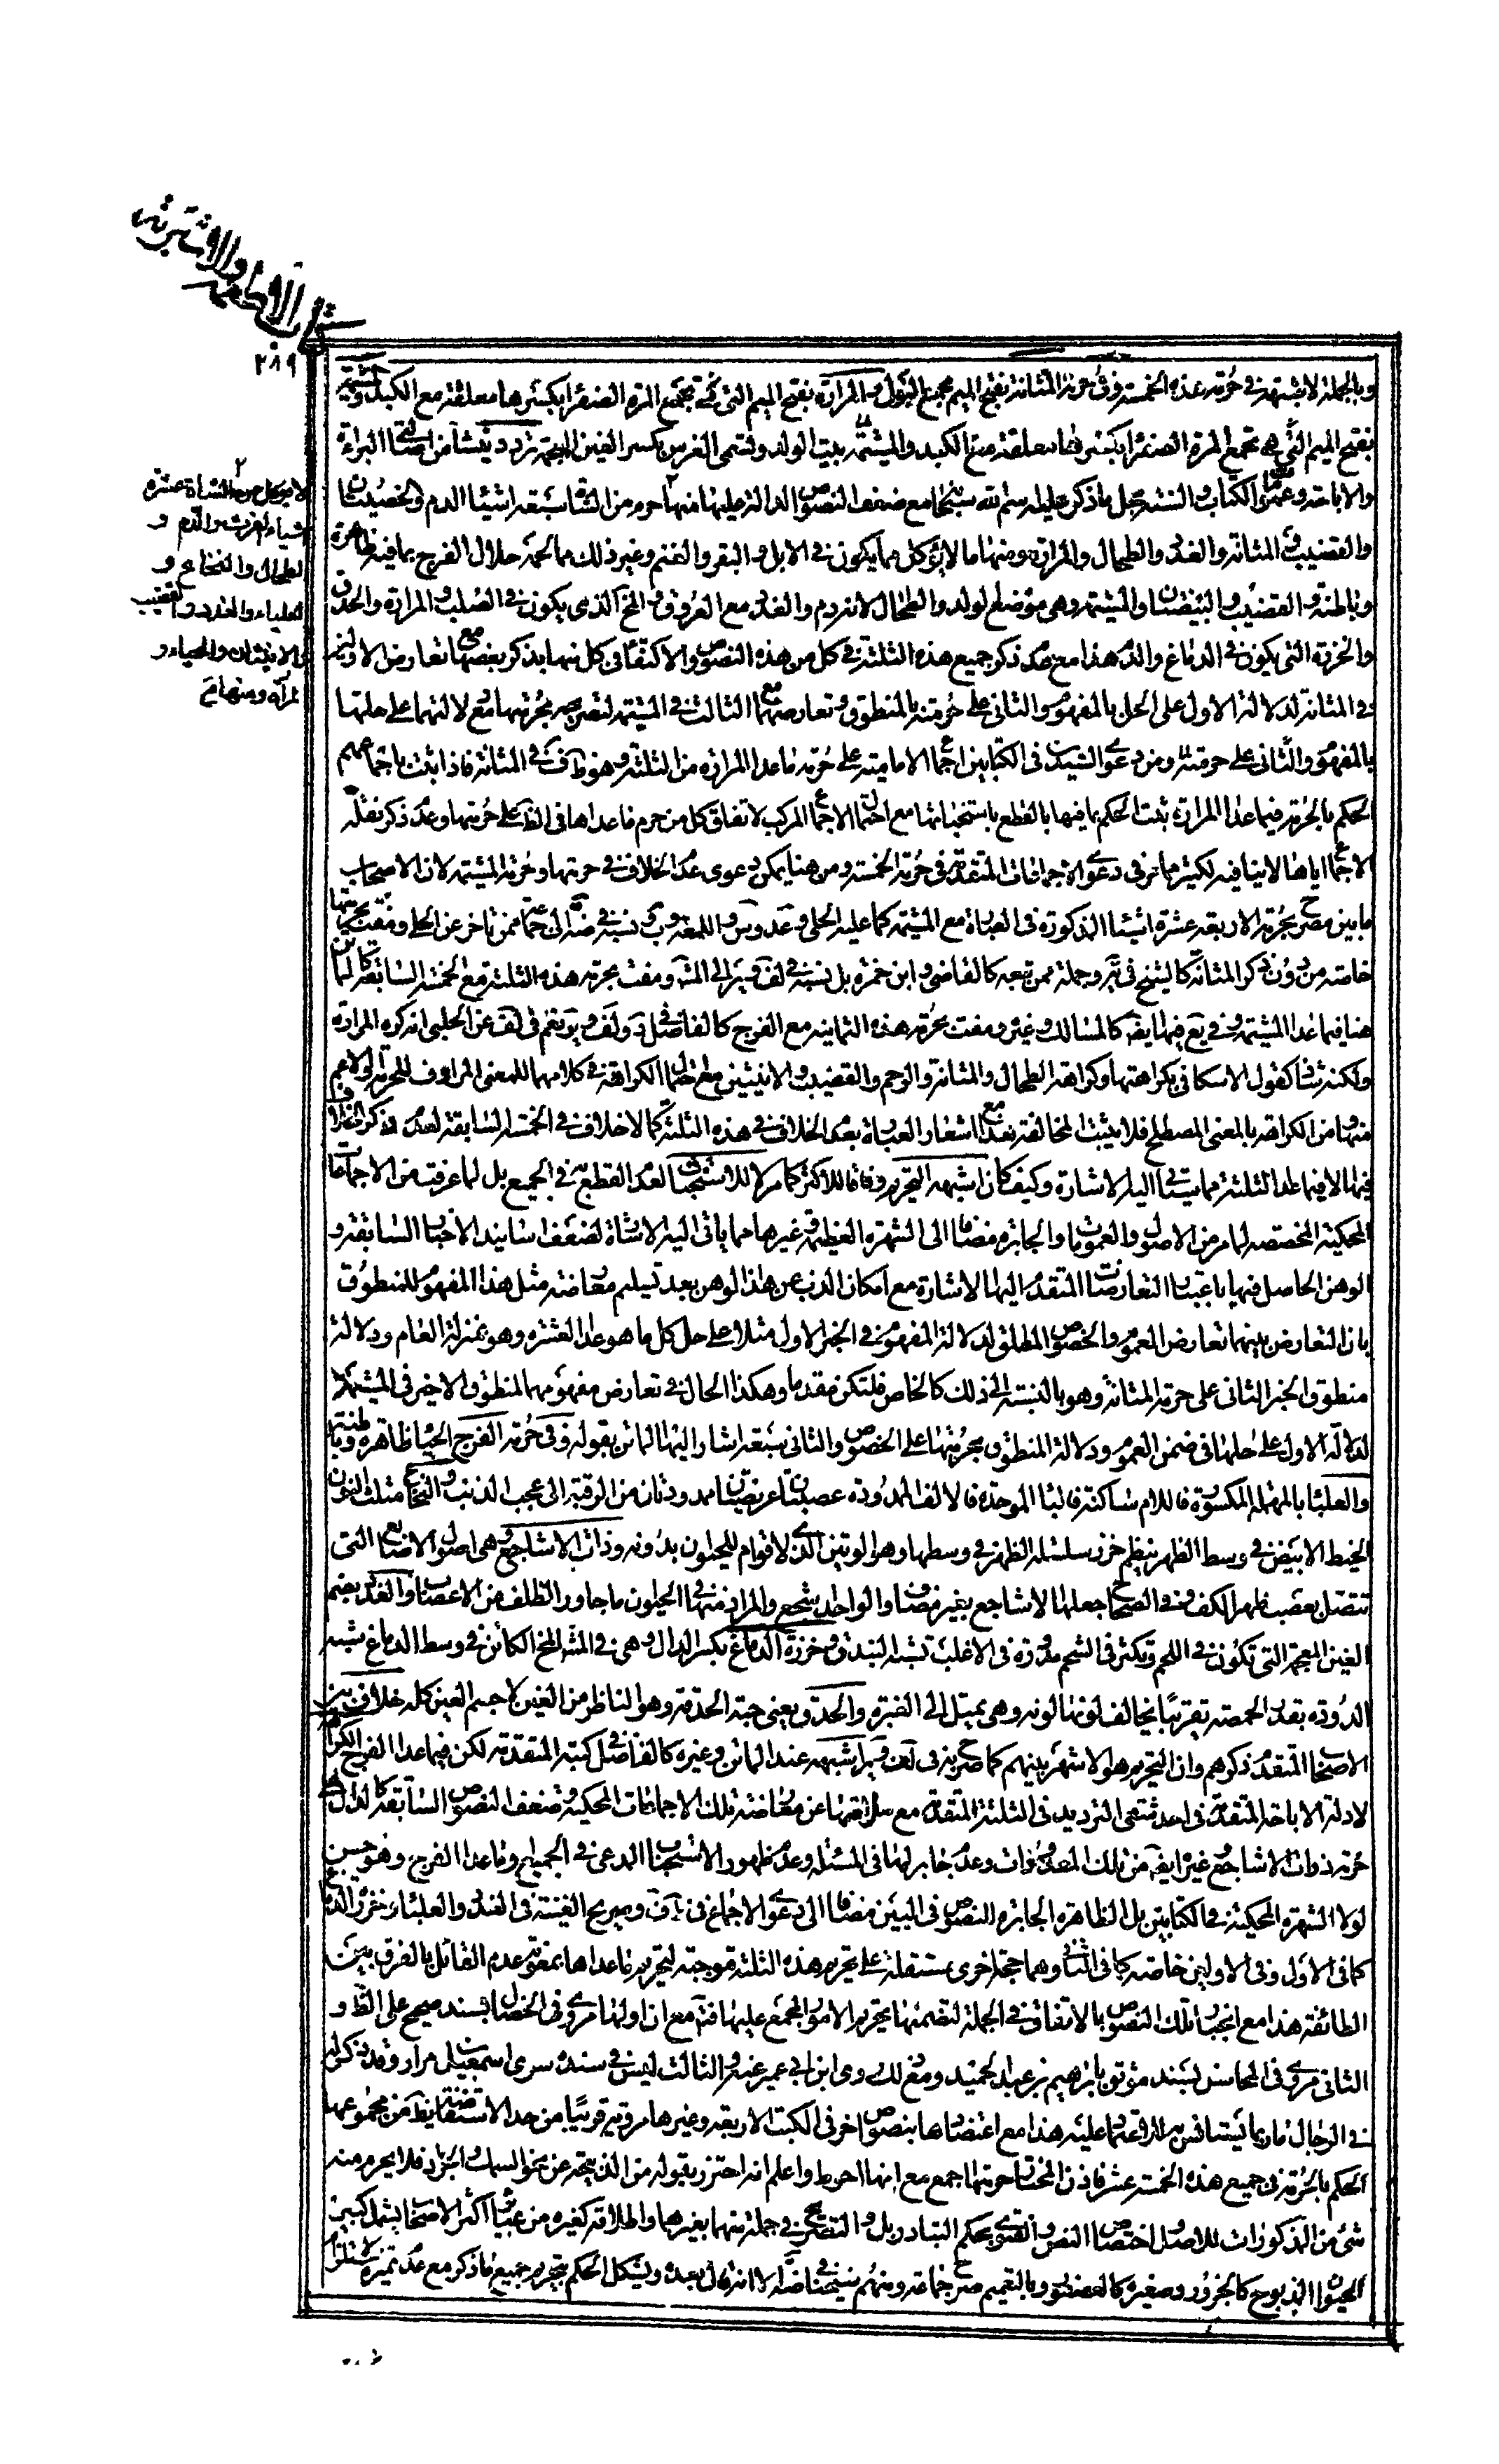 كتاب الاطعمة والاشربة
٢٨٩
وبالجملة لا شبهة في حرمة هذه الخمسة وفي حرمة المثانة بفتح الميم مجمع البول والمرارة بفتح الميم التي تجمع المرة الصفراء بكسرها معلقة مع الكبد والمشيمة
بفتح الميم التي هي تجمع المرة الصفراء بكسرها معلقة مع الكبد والمشيمة بيت الولد وتسمى الغرس بكسر الغين المعجمة تردد ينشأ من اصالتي البراءة
والاباحة وعموما الكتاب والسنة بحل ما ذكر عليه اسم الله سبحانه مع ضعف النصوص الدالة عليها منها حرم من الشاة سبعة اشياء الدم والخصيتان
والقضيب والمثانة والغدد والطحال والمرارة ومنها ما لا يؤكل مما يكون في الابل والبقر والغنم وغير ذلك مما لحمه حلال الفرج بما فيه ظاهره
وباطنه والقضيب والبيضتان والمشيمة وهي موضع الولد والطحال لانه دم والغدد مع العروق والمخ الذي يكون في الصلب والمرارة والحدق
والخرزة التي يكون في الدماغ والدم هذا مع عدم ذكر جميع هذه الثلثة في كل من هذه النصوص والاكتفاء في كل منها بذكر بعضها مع تعارض الاولين
في المثانة لدلالة الاول على الحل بالمفهوم والثاني على حرمته بالمنطوق وتعارضهما مع الثالث في المشيمة لتصريحه بحرمتها مع دلالتهما على حلها
بالمفهوم والثاني على حرمته ومن دعوى السيدين في الكتابين اجماع الامامية على حرمة ما عدا المرارة من الثلثة وهو ظاهر ف في المثانة فاذا ثبت باجماعهم
الحكم بالحرمة فيما عدا المرارة ثبت الحكم بما فيها بالقطع باستخباثها مع احتمال الاجماع المركب لاتفاق كل من حرم ما عداها في الظ على حرمتها وعدم ذكر نقلة
الاجماع اياها لا ينافيه لكثير مما مر في دعوى الاجماعات المتقدمة في حرمة الخمسة ومن هنا يمكن دعوى عدم الخلاف في حرمتها وحرمة المشيمة لان الاصحاب
ما بين مصرح بحرمة الاربعة عشرة اشياء المذكورة في العبارة مع المشيمة كما عليه الحلي وعد وس واللمعة
خاصة من دون ذكر المثانة كالشيخ في يه وجملة ممن تبعه كالقاضي وابن حمزة بل نسبه في لف وير الى المش ومفت بحرمة هذه الثلثة مع الخمسة السابقة كالماتن
هنا فيما عدا المشيمة وفي يع فيها ايضا كالمسالك وغيره ومفت بحرمة هذه الثمانية مع الفرج كالفاضل في د ولف وير نعم في لف عن الحلبي انه كره المرارة
ولكنه شاذ كقول الاسكافي بكراهتها وكراهة الطحال والمثانة والرحم والقضيب والانثيين مع احتمال الكراهة في كلامهما للمعنى المرادف للحرمة او الاعم
منها ومن الكراهة بالمعنى المصطلح فلا يثبت المخالفة
فيها الا فيما عدا الثلثة مما سيأتي اليه الاشارة وكيف كان اشبهه التحريم وفاقا للاكثر كما مر لا للاستخباث لعدم القطع به في الجميع بل لما عرفت من الاجماعات
المحكية المخصصة لما مر من الاصول والعمومات والجابرة مضافا الى الشهرة العظيمة وغيرها مما ياتي اليه الاشارة لضعف اسانيد الاخبار السابقة و
الوهن الحاصل فيها باعتبار التعارضات المتقدم اليها الاشارة مع امكان الذب عن هذا الوهن بعد تسليم معارضة مثل هذا المفهوم للمنطوق
بان التعارض بينهما تعارض العموم والخصوص المطلق لدلالة المفهوم في الخبر الاول مثلا على حل كل ما هو عدا العشرة وهو بمنزلة العام ودلالة
منطوق الخبر الثاني على حرمة المثانة وهو بالنسبة الى ذلك كالخاص فلتكن مقدما وهكذا الحال في تعارض مفهومهما لمنطوق الاخير في المشيمة
لدلالة الاول على حلها في ضمن العموم ودلالة المنطوق بحرمتها على الخصوص والثاني سبعة اشار اليها الماتن بقوله وفي حرمة الفرج الحيا ظاهره وباطنه
والعلباء بالمهملة المكسورة فاللام ساكنة فالباء الموحدة فالالف الممدودة عصبتان عريضتان ممدودتان من الرقبة الى عجب الذنب والنخاع مثلث النون
الخيط الابيض في وسط الظهر ينظم خرز سلسلة الظهر في وسطها وهو الوتين الذي لا قوام للحيوان بدونه وذات الاشاجع وهي اصول الاصابع التي
تتصل بعصب ظهر الكف وفي الصحاح جعلها الاشاجع بغير مضاف والواحد اشجع والمراد منها في الحيوان ما جاور الظلف من الاعصاب والغدد بضم
الغين المعجمة التي تكون في اللحم وتكثر في الشحم مدورة في الاغلب تشبه البندق وخرزة الدماغ بكسر الدال وهي في المش المخ الكائن في وسط الدماغ شبه
الدودة بقدر الحمصة تقريبا يخالف لونها لونه وهي يميل الى الغبرة والحدق يعني حبة الحدقة وهو الناظر من العين لا جسم العين كله خلاف بين
الاصحاب المتقدم ذكرهم وان التحريم هو الاشهر بينهم كما صرح به في لف وير اشبهه عند الماتن وغيره كالفاضل في كتبه المتقدمة لكن فيما عدا الفرج الكراهة
لادلة الاباحة المتقدمة في احد شقي الترديد في الثلثة المتقدمة مع سلامتها عن معارضة تلك الاجماعات المحكية وضعف النصوص السابقة كالدال على
حرمة ذوات الاشاجع وغيره ايضا من تلك المعدودات وعدم جابر لها في المسئلة وعدم ظهور الاستخباث المدعى في الجميع وما عدا الفرج وهو حسن
لولا الشهرة المحكية في الكتابين بل الظاهرة الجابرة للنصوص في البين مضافا الى دعوى الاجماع في ف وصريح الغنية في الغدد والعلباء وخرزة الدماغ
كما في الاول وفي الاولين خاصة كما في الثاني وهما حجة اخرى مستقلة على تحريم هذه الثلثة موجبة لتحريم ما عداها بمعونة عدم القائل بالفرق بين
الطائفة هذا مع انجبار تلك النصوص بالاتفاق في الجملة لتضمنها تحريم الامور المجمع عليها فتم مع ان اولها مروي في الخصال بسند صحيح على الظ و
الثاني مروي في المحاسن بسند موثق بابراهيم بن عبد الحميد ومع ذلك روى ابن ابي عمير عنه والثالث ليس في سنده سوى اسمعيل بن مرار وقد ذكر له
في الرجال ما ربما يستانس به للاعتماد عليه هذا مع اعتضادها بنصوص اخر في الكتب الاربعة وغيرها مروية قريبا من حد الاستفاضة ايضا من مجموعها
الحكم بالحرمة في جميع هذه الخمسة عشر فاذن المختار حرمتها اجمع مع انها احوط واعلم انه احترز بقوله من الذبيحة عن نحو السمك والجراد فلا يحرم منه
شئ من المذكورات للاصل واختصاص النص والفتوى بحكم التبادر بل والتصريح في جملة منهما بغيرهما واطلاقه كغيره من عبائر اكثر الاصحاب يشمل كبير
الحيوان المذبوح كالجزور وصغيره كالعصفور وبالتعميم صرح جماعة ومنهم شيخنا في ضه الا انه قال بعده ويشكل الحكم بتحريم جميع ما ذكر مع عدم تميزه لاستلزام
لا يؤكل من الشاة عشرة
اشياء الفرث والدم و
الطحال والنخاع و
العلباء والغدد والقضيب
والانثيان والحياء و
المرارة ومنها م